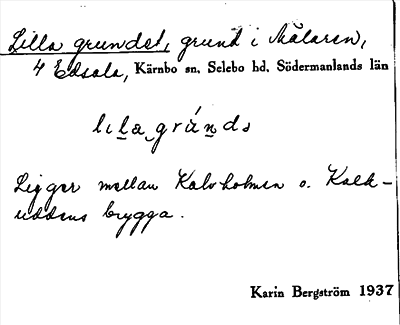 Lilla grundet, grund i Mälaren,
4 Edsala, Kärnbo sn, Selebo hd, Södermanlands län
lila gründs
Ligger mellan Kalvholmen o. Kalk-
uddens brygga.
Karin Bergström 1937